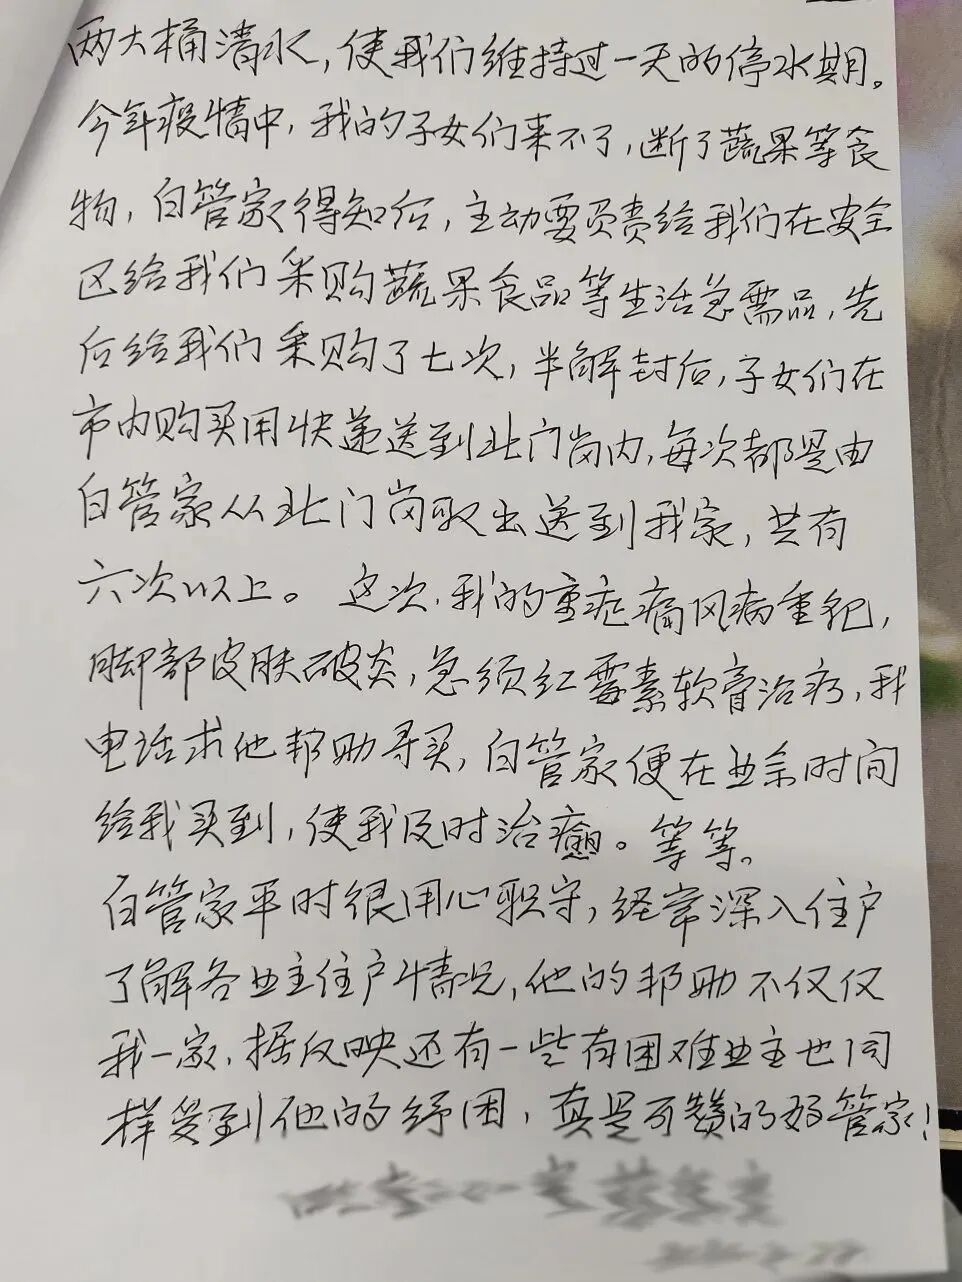 两大桶清水，使我们维持过一天的停水期。
今年疫情中，我的子女们来不了，断了蔬果等食
物，白管家得知后，主动要负责给我们在安全
区给我们采购蔬果食品等生活急需品，先
后给我们采购了七次，半解封后，子女们在
市内购买用快递送到北门岗内，每次都是由
白管家从北门岗取出送到我家，共有
六次以上。这次，我的重症痛风病重犯，
脚部皮肤破炎，急须红霉素软膏治疗，我
电话求他帮助寻买，白管家便在业余时间
给我买到，使我及时治癒。等等。
白管家平时很用心职守，经常深入住户
了解各业主住户情况，他的帮助不仅仅
我一家，据反映还有一些有困难业主也同
样受到他的纾困，真是可赞的好管家！